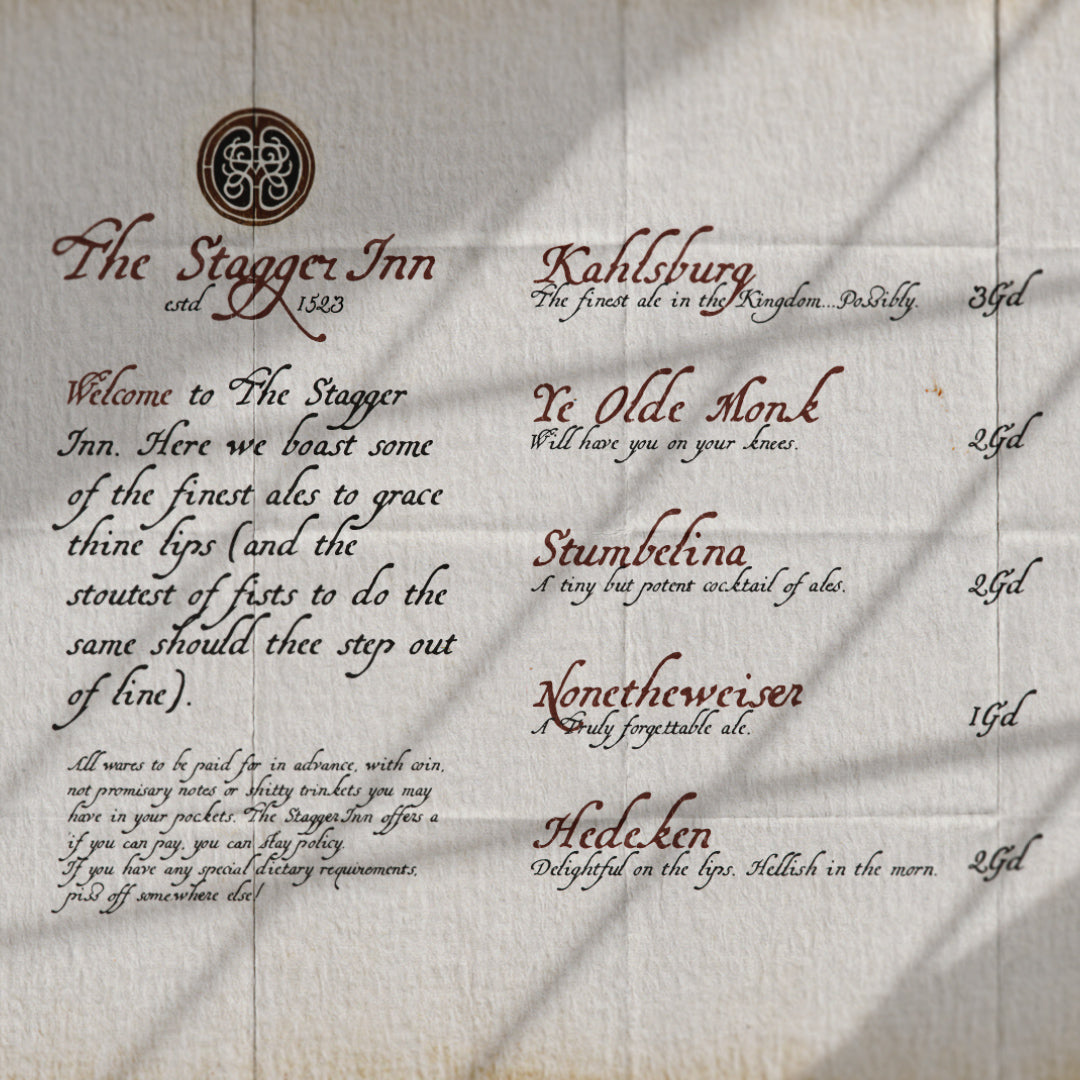 The Stagger Inn
estd 1523
Welcome to The Stagger
Inn. Here we boast some
of the finest ales to grace
thine lips (and the
stoutest of fists to do the
same should thee step out
of line).
All wares to be paid for in advance, with coin,
not promisary notes or shitty trinkets you may
have in your pockets. The Stagger Inn offers a
if you can pay, you can stay policy.
If you have any special dietary requirements,
piss off somewhere else!
Kahlsburg
The finest ale in the Kingdom...Possibly. 3Gd
Ye Olde Monk
Will have you on your knees. 2Gd
Stumbelina
A tiny but potent cocktail of ales. 2Gd
Nonetheweiser
A Truly forgettable ale. 1Gd
Hedeken
Delightful on the lips. Hellish in the morn. 2Gd